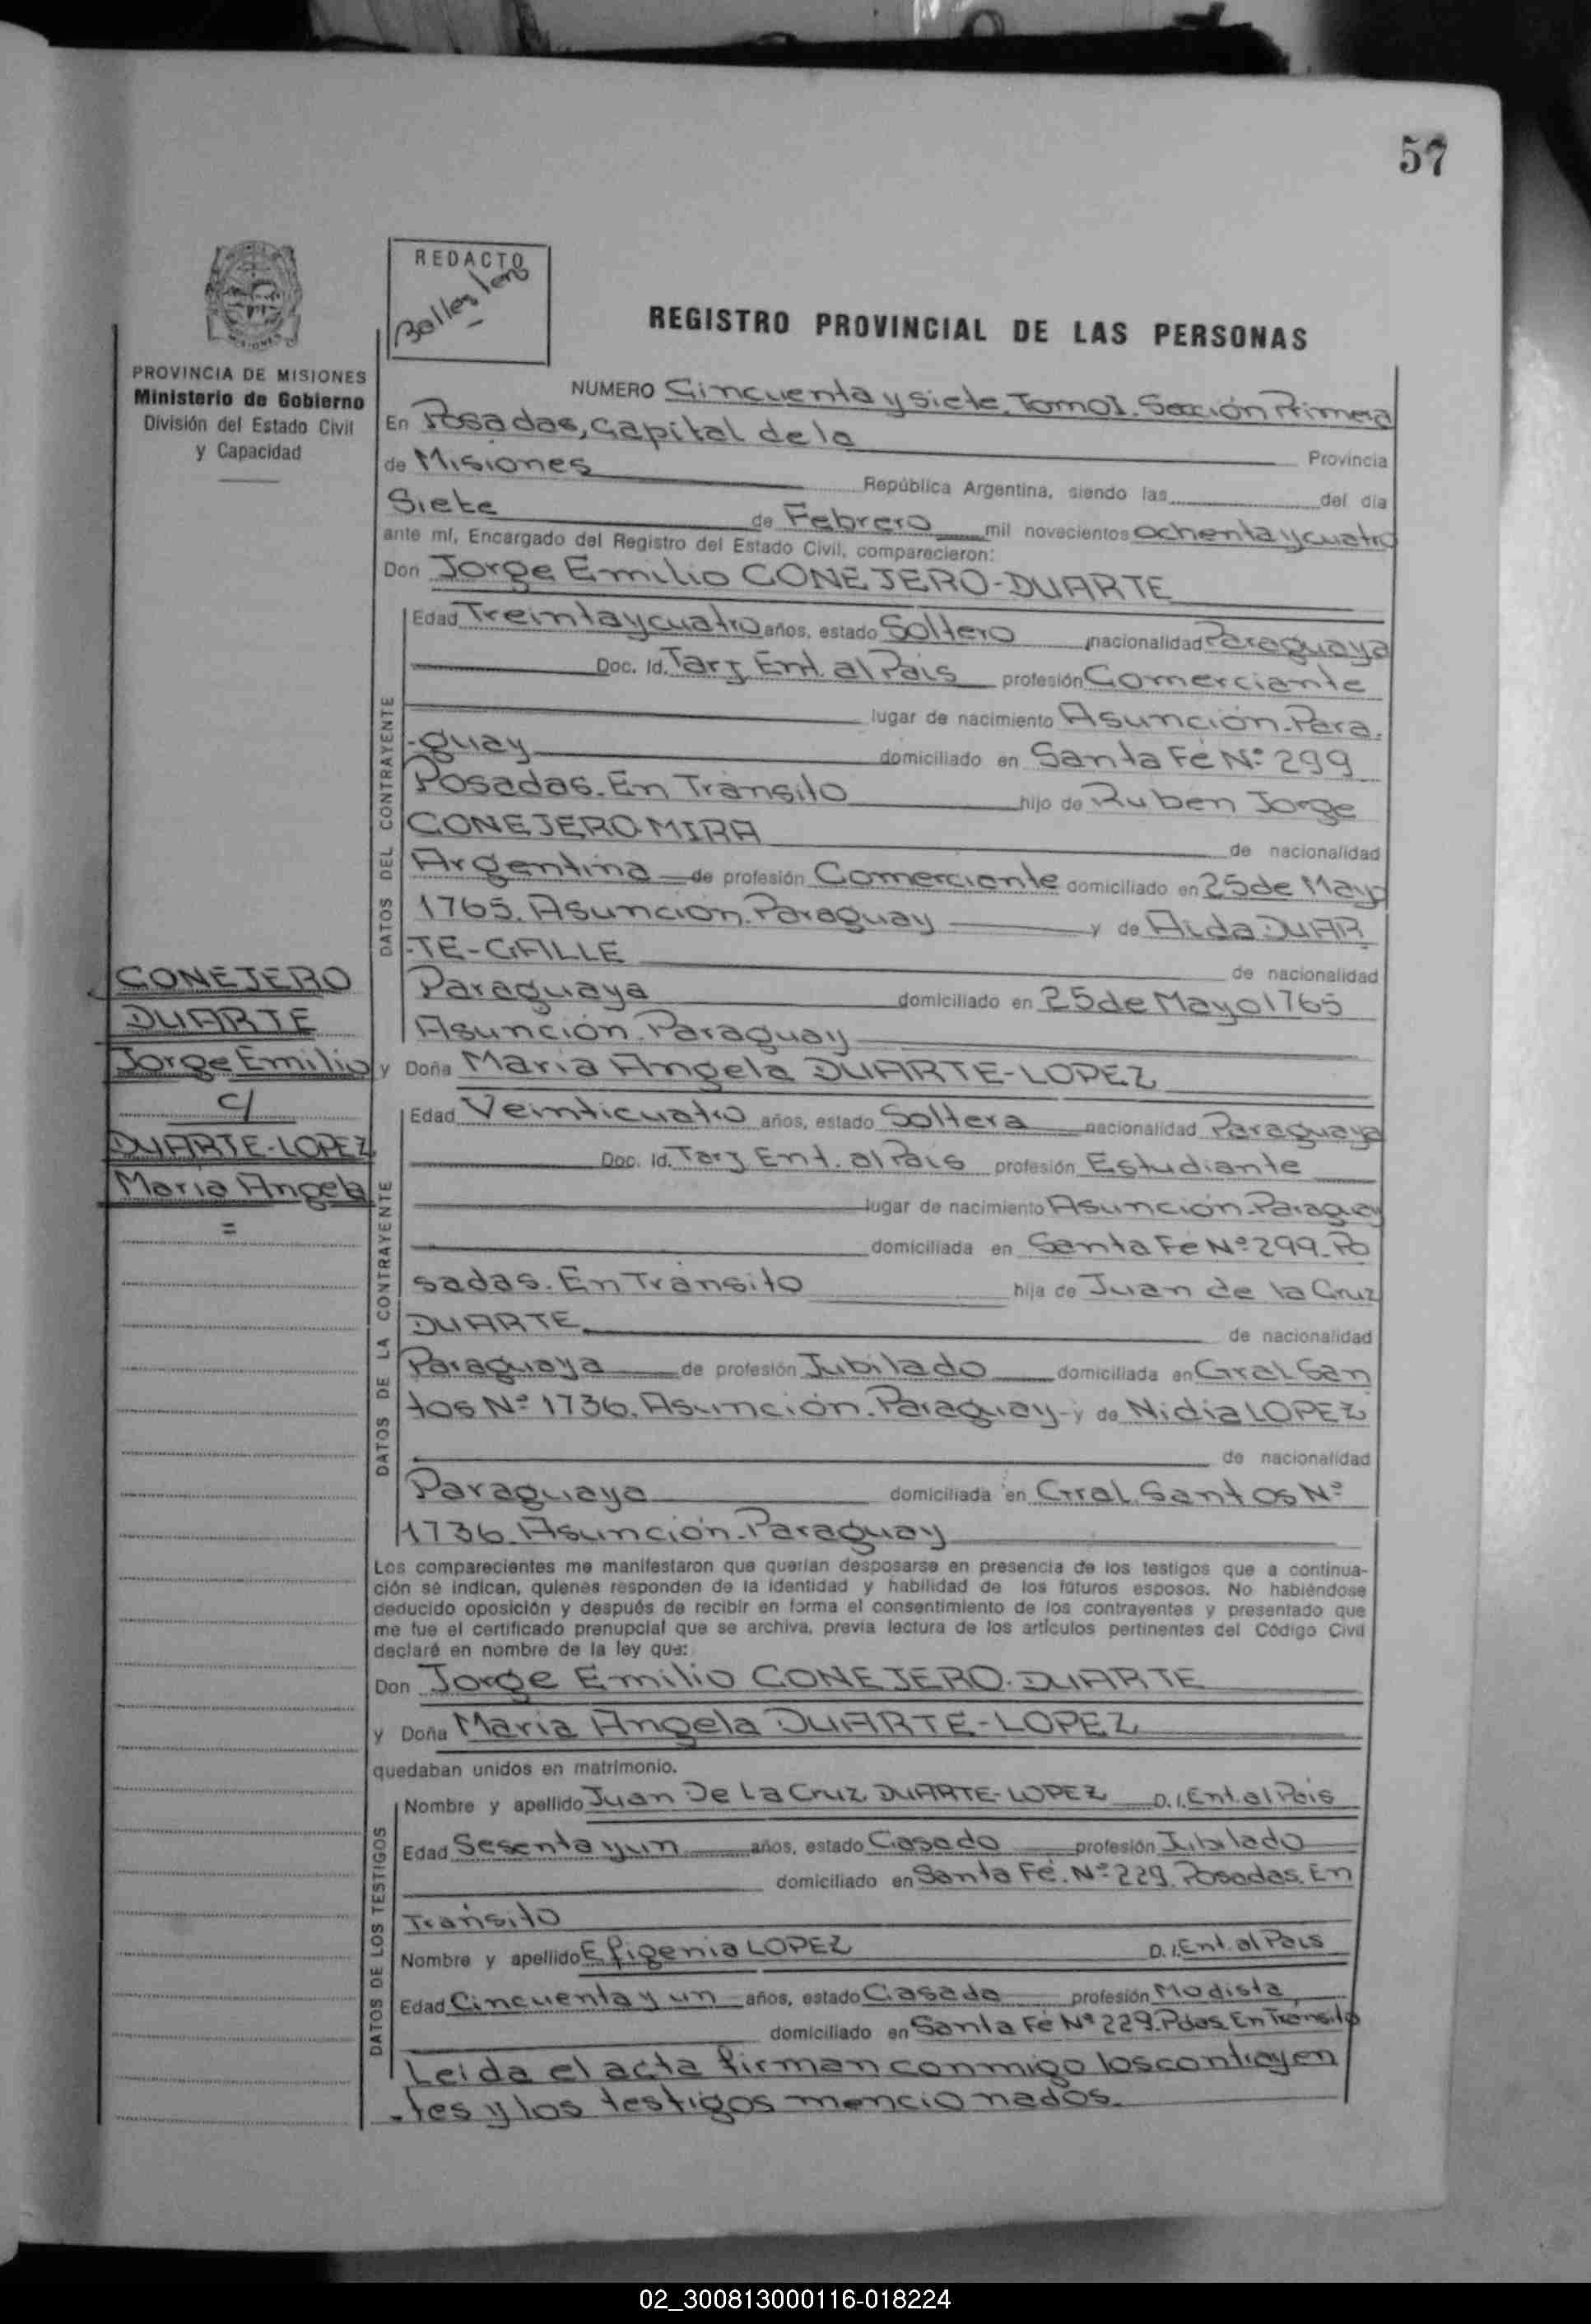 57
REDACTO
Ballestero
REGISTRO PROVINCIAL DE LAS PERSONAS
PROVINCIA DE MISIONES
Ministerio de Gobierno
División del Estado Civil
y Capacidad
NUMERO Cincuenta y siete. Tomo I. Sección Primera
En Posadas, Capital de la Provincia
de Misiones República Argentina, siendo las del día
Siete de Febrero mil novecientos ochenta y cuatro
ante mí, Encargado del Registro del Estado Civil, comparecieron:
Don Jorge Emilio CONEJERO-DUARTE
DATOS DEL CONTRAYENTE
Edad Treinta y cuatro años, estado Soltero nacionalidad Paraguaya
Doc. Id. Tarj Ent. al País profesión Comerciante
lugar de nacimiento Asunción-Para.
-guay domiciliado en Santa Fé N: 299
Posadas. En Tránsito hijo de Rubén Jorge
CONEJERO-MIRA de nacionalidad
Argentina de profesión Comerciante domiciliado en 25 de Mayo
1765. Asunción-Paraguay y de Aida DUAR
-TE- de nacionalidad
Paraguaya domiciliado en 25 de Mayo 1765
Asunción-Paraguay
CONEJERO
DUARTE
Jorge Emilio
c/
DUARTE-LOPEZ
María Angela
=
y Doña María Angela DUARTE-LOPEZ
DATOS DE LA CONTRAYENTE
Edad Veinticuatro años, estado Soltera nacionalidad Paraguaya
Doc. Id. Tarj Ent. al País profesión Estudiante
lugar de nacimiento Asunción-Paraguay
domiciliada en Santa Fé Nº 299-Po
sadas. En Tránsito hija de Juan de la Cruz
DUARTE de nacionalidad
Paraguaya de profesión Jubilado domiciliada en Gral San
tos Nº 1736. Asunción-Paraguay- y de Nidia LOPEZ
de nacionalidad
Paraguaya domiciliada en Gral Santos Nº
1736 Asunción-Paraguay
Los comparecientes me manifestaron que querían desposarse en presencia de los testigos que a continua-
ción se indican, quienes responden de la identidad y habilidad de los futuros esposos. No habiéndose
deducido oposición y después de recibir en forma el consentimiento de los contrayentes y presentado que
me fue el certificado prenupcial que se archiva, previa lectura de los artículos pertinentes del Código Civil
declaré en nombre de la ley que:
Don Jorge Emilio CONEJERO-DUARTE
y Doña María Angela DUARTE-LOPEZ
quedaban unidos en matrimonio.
DATOS DE LOS TESTIGOS
Nombre y apellido Juan De La Cruz DUARTE-LOPEZ D.I. Ent. al País
Edad Sesenta y un años, estado Casado profesión Jubilado
domiciliado en Santa Fé. Nº 229. Posadas. En
Tránsito
Nombre y apellido Efigenia LOPEZ D.I. Ent. al País
Edad Cincuenta y un años, estado Casada profesión Modista
domiciliado en Santa Fé Nº 229. Pdas. En Tránsito
Leida el acta firman conmigo los contrayen
-tes y los testigos mencionados.
02_300813000116-018224